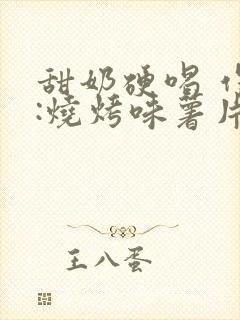 甜奶硬唱
:燒烤味薯片
王八蛋